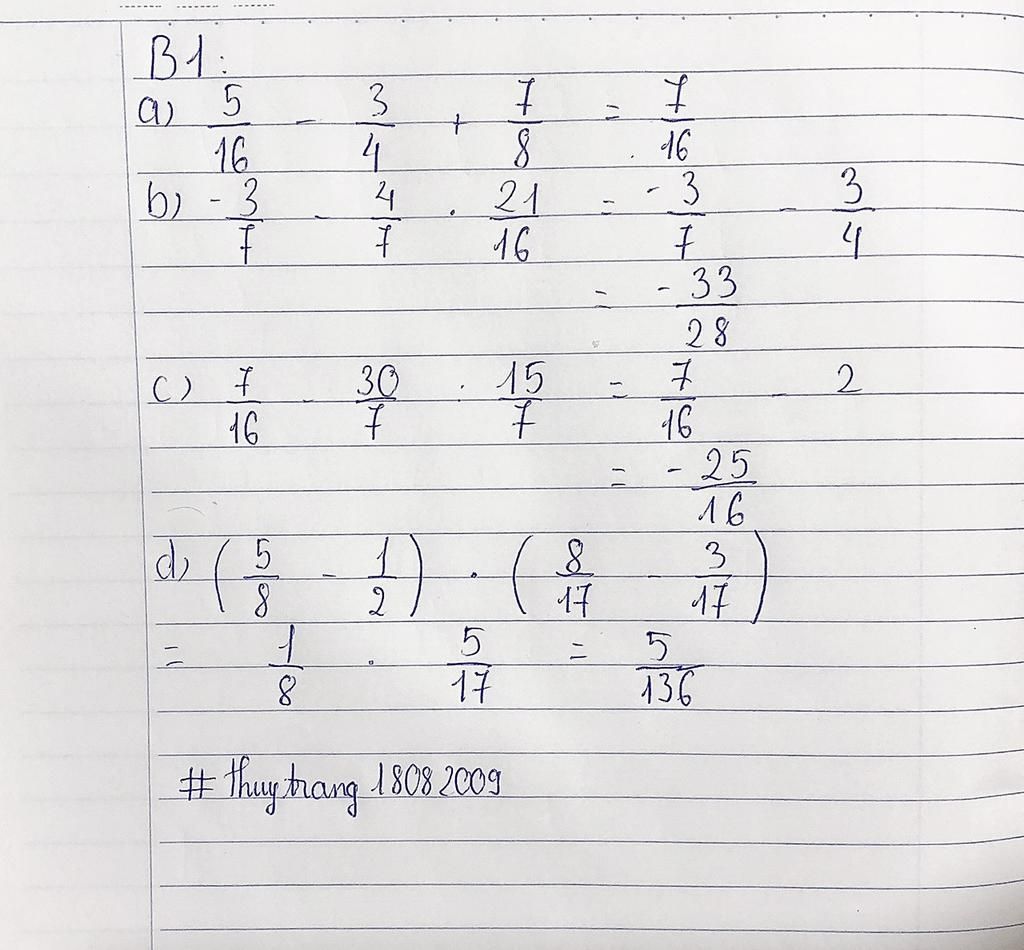 B1:
a) 5/16 - 3/4 + 7/8 = 7/16
b) -3/7 - 4/7 . 21/16 = -3/7 - 3/4
= -33/28
c) 7/16 - 30/7 : 15/7 = 7/16 - 2
= -25/16
d) (5/8 - 1/2) . (8/17 - 3/17)
= 1/8 . 5/17 = 5/136
# thuytrang 18082009